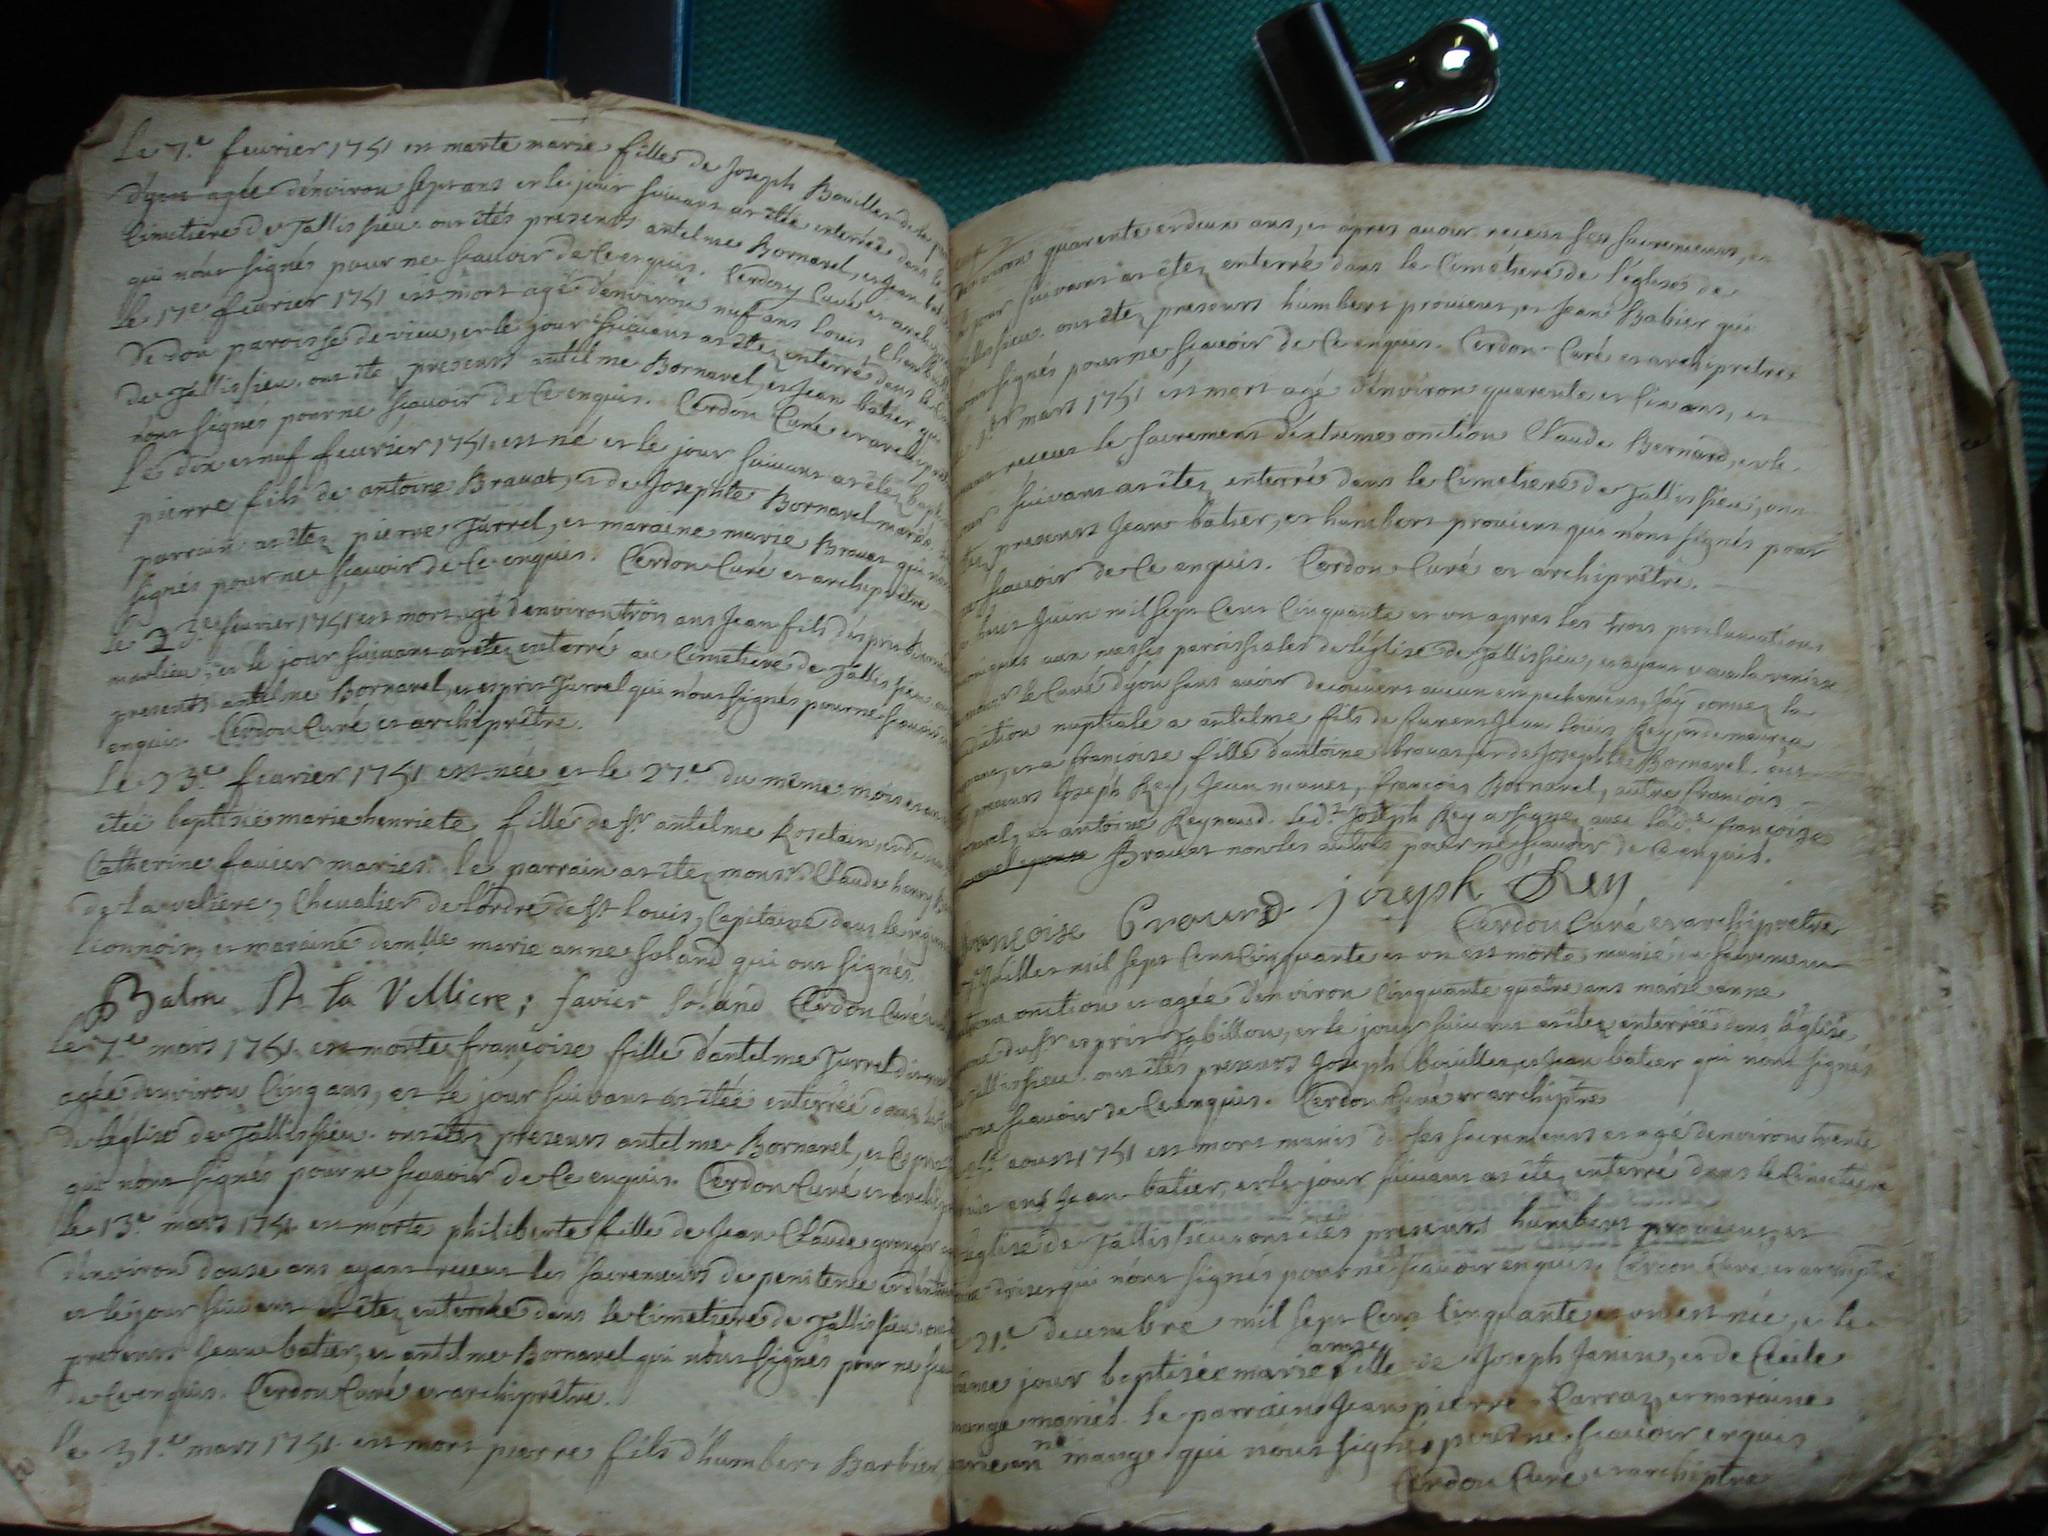 Le 7.e feurier 1751 est morte marie fille de Joseph Bouillet de la
d'yon agée d'environ sept ans et le jour suivant at etée enterrée dans le
Cimetiere de Tallissieu. ont étés presents antelme Bornarel, et Jean
qui n'ont signés pour ne scauoir de Ce enquis. Cerdon Curé et
Le 17e feurier 1751 est mort agé d'environ neuf ans louis
de don paroisse de vieu, et le jour suivant at étez enterré dans le
de Tallissieu. ont ete presents antelme Bornarel, et Jean batier qui
n'ont signés pour ne scauoir de Ce enquis. Cerdon Curé et archipretre
Le dix et neuf feurier 1751. est né et le jour suivant at étez
pierre fils de antoine Brauat, et de Josephte Bornarel mariés.
parrain at étez pierre Jurrel, et maraine marie Brauat qui n'ont
signés pour ne scauoir de Ce enquis. Cerdon Curé et archiprêtre
le 23.e feurier 1751 est mort agé d'environ trois ans Jean fils d'esprit
marlieu, et le jour suivant at étez enterré au Cimetiere de Tallissieu
presents antelme Bornarel, et esprit Jurrel qui n'ont signés pour ne scauoir de
enquis. Cerdon Curé et archiprêtre.
Le 23.e feurier 1751 est née et le 27.e du même mois
étée baptisée marie henriete fille de Sr antelme Rosetain, et de
Catherine fauier mariés. le parrain at étez monsr Claude
de la veliere, Chevalier de l'ordre de St louis, Capitaine dans le
Lionnois, et maraine demlle marie anne Soland qui ont signés.
Balm De la Velliere; favier Soland Cerdon Curé
Le 7.e mars 1751. est morte françoise fille d'antelme Jurrel
agée d'environ Cinq ans, et le jour suivant at étée enterrée dans le
de l'église de Tallissieu. ont étez presents antelme Bornarel, et
qui n'ont signés pour ne scauoir de Ce enquis. Cerdon Curé et
le 13.e mars 1751 est morte philiberte fille de Jean Claude
d'environ douse ans ayant receut les sacrements de penitence
et le jour suivant at étez enterrée dans le Cimetiere de Tallissieu. ont
presents Jean batier, et antelme Bornarel qui n'ont signés pour ne
de Ce enquis. Cerdon Curé et archiprêtre.
le 31.e mars 1751. est mort pierre fils d'humbert Barbier
d'environ quarente et deux ans, et apres auoir receus ses sacrements, et
jour suivant at étez enterré dans le Cimétiére de l'église de
Tallissieu. ont étez presents humbert prouient, et Jean Babier qui
n'ont signés pour ne scauoir de Ce enquis. Cerdon Curé et archipretre
mars 1751 est mort agé d'environ quarente et ans, et
receus le sacrement d'extreme onction Claude Bernard, et le
jour suivant at étez enterré dans le Cimetiere de Tallissieu; ont
étez presents Jean batier, et humbert prouient qui n'ont signés pour
ne scauoir de Ce enquis. Cerdon Curé et archiprêtre.
huit Juin mil sept Cent Cinquante et un apres les trois proclamations
aux messes paroissiales de l'église de Tallissieu, et ayant la remise
le Curé d'yon sans auoir decouvert aucun empechement, j'ay la
nuptiale a antelme fils de Jean louis Rey, et de
et a françoise fille d'antoine brauat, et de Josephte Bornarel. ont
presents Joseph Rey, Jean françois Bornarel, autre françois
et antoine Reynaud. Ledt Joseph Rey a signé avec lade françoise
Brauat non les autres pour ne scauoir de Ce enquis.
françoise joseph Rey
Cerdon Curé et archiprêtre
Juillet mil sept Cent Cinquante et un est morte munie du sacrement
onction et agée d'environ Cinquante quatre ans marie anne
du Sr esprit Jabillou, et le jour suivant at étez enterrée dans l'église
Tallissieu. ont étés presents Joseph bouillet, et Jean batier qui n'ont signés
pour ne scauoir de Ce enquis. Cerdon Curé et archiptre
aoust 1751 est mort munis de ses sacrements et agé d'environ trente
ans Jean batier, et le jour suivant at étez enterré dans le Cimetiere
l'église de Tallissieu ont étés presents humbert prouient, et
qui n'ont signés pour ne scauoir enquis. Cerdon Curé et archiptre
21.e decembre mil sept Cent Cinquante et un est née, et le
même jour baptisée marie fille de Joseph Janin, et de Cécile
mange mariés. le parrain Jean pierre Carraz, et maraine
mange qui n'ont signés pour ne scauoir enquis
Cerdon Curé et archiptre